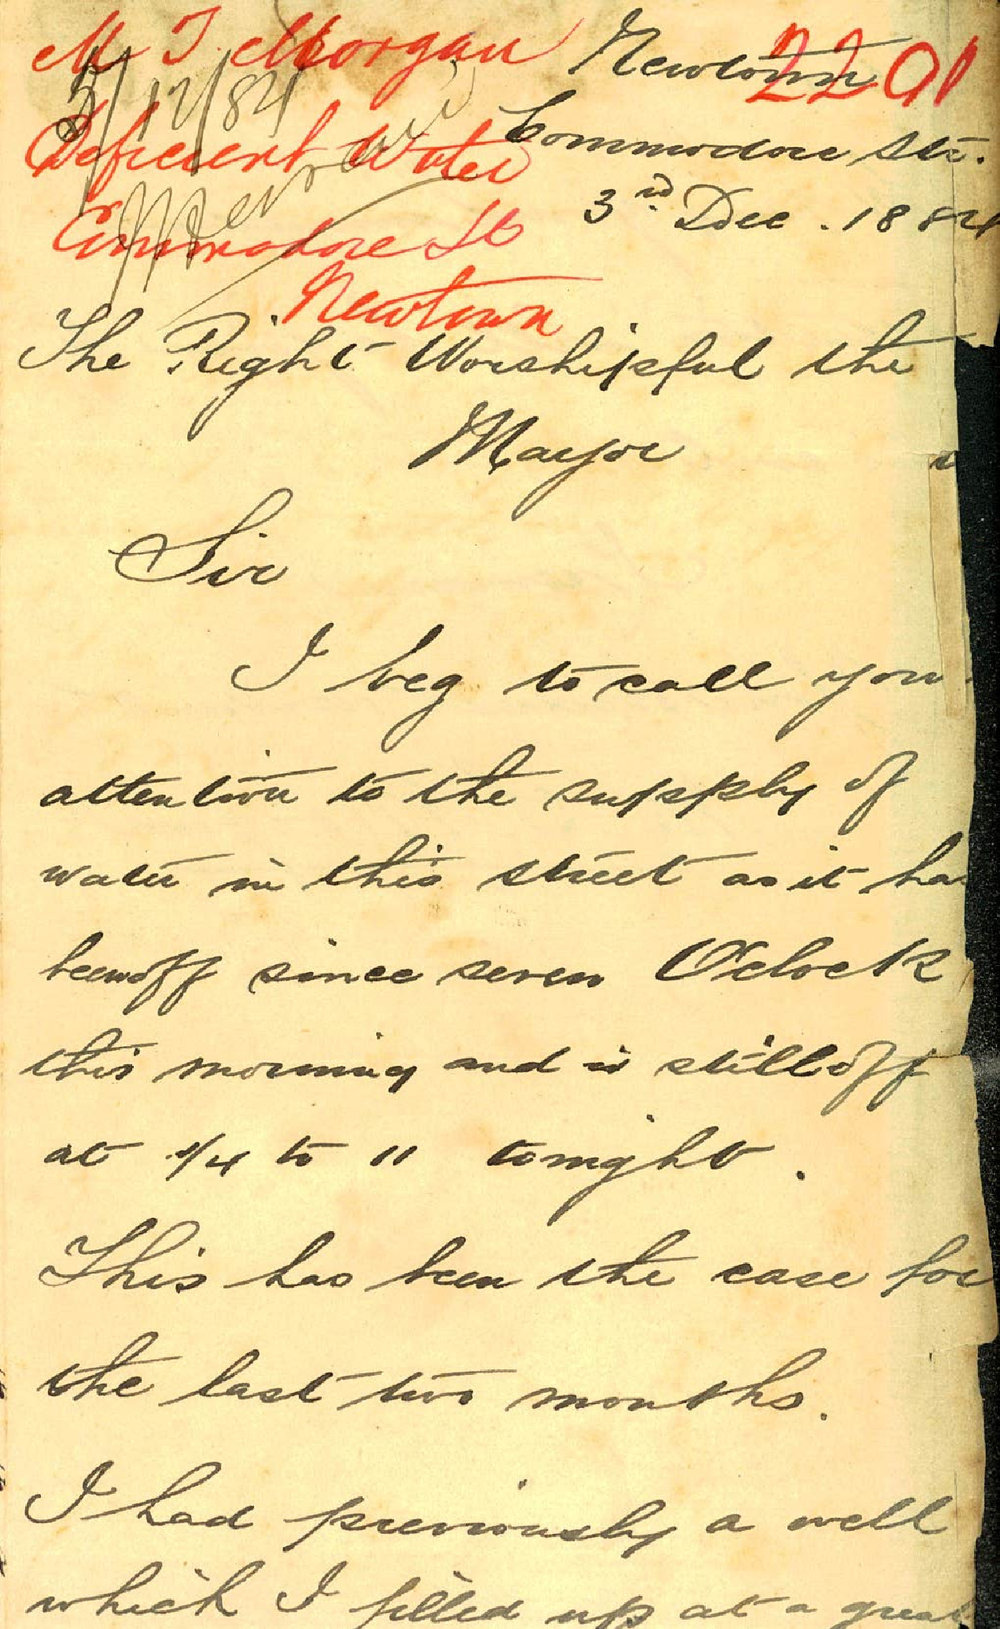 M J Morgan
2291
5/12/84
Deficient Water
Commodore St
Newtown
Newtown
Commodore Str.
3rd. Dec. 1884
The Right Worshipful the
Mayor
Sir
I beg to call your
attention to the supply of
water in this street as it has
been off since seven O'clock
this morning and is still off
at 1/4 to 11 tonight.
This has been the case for
the last two months.
I had previously a well
which I filled up at a great